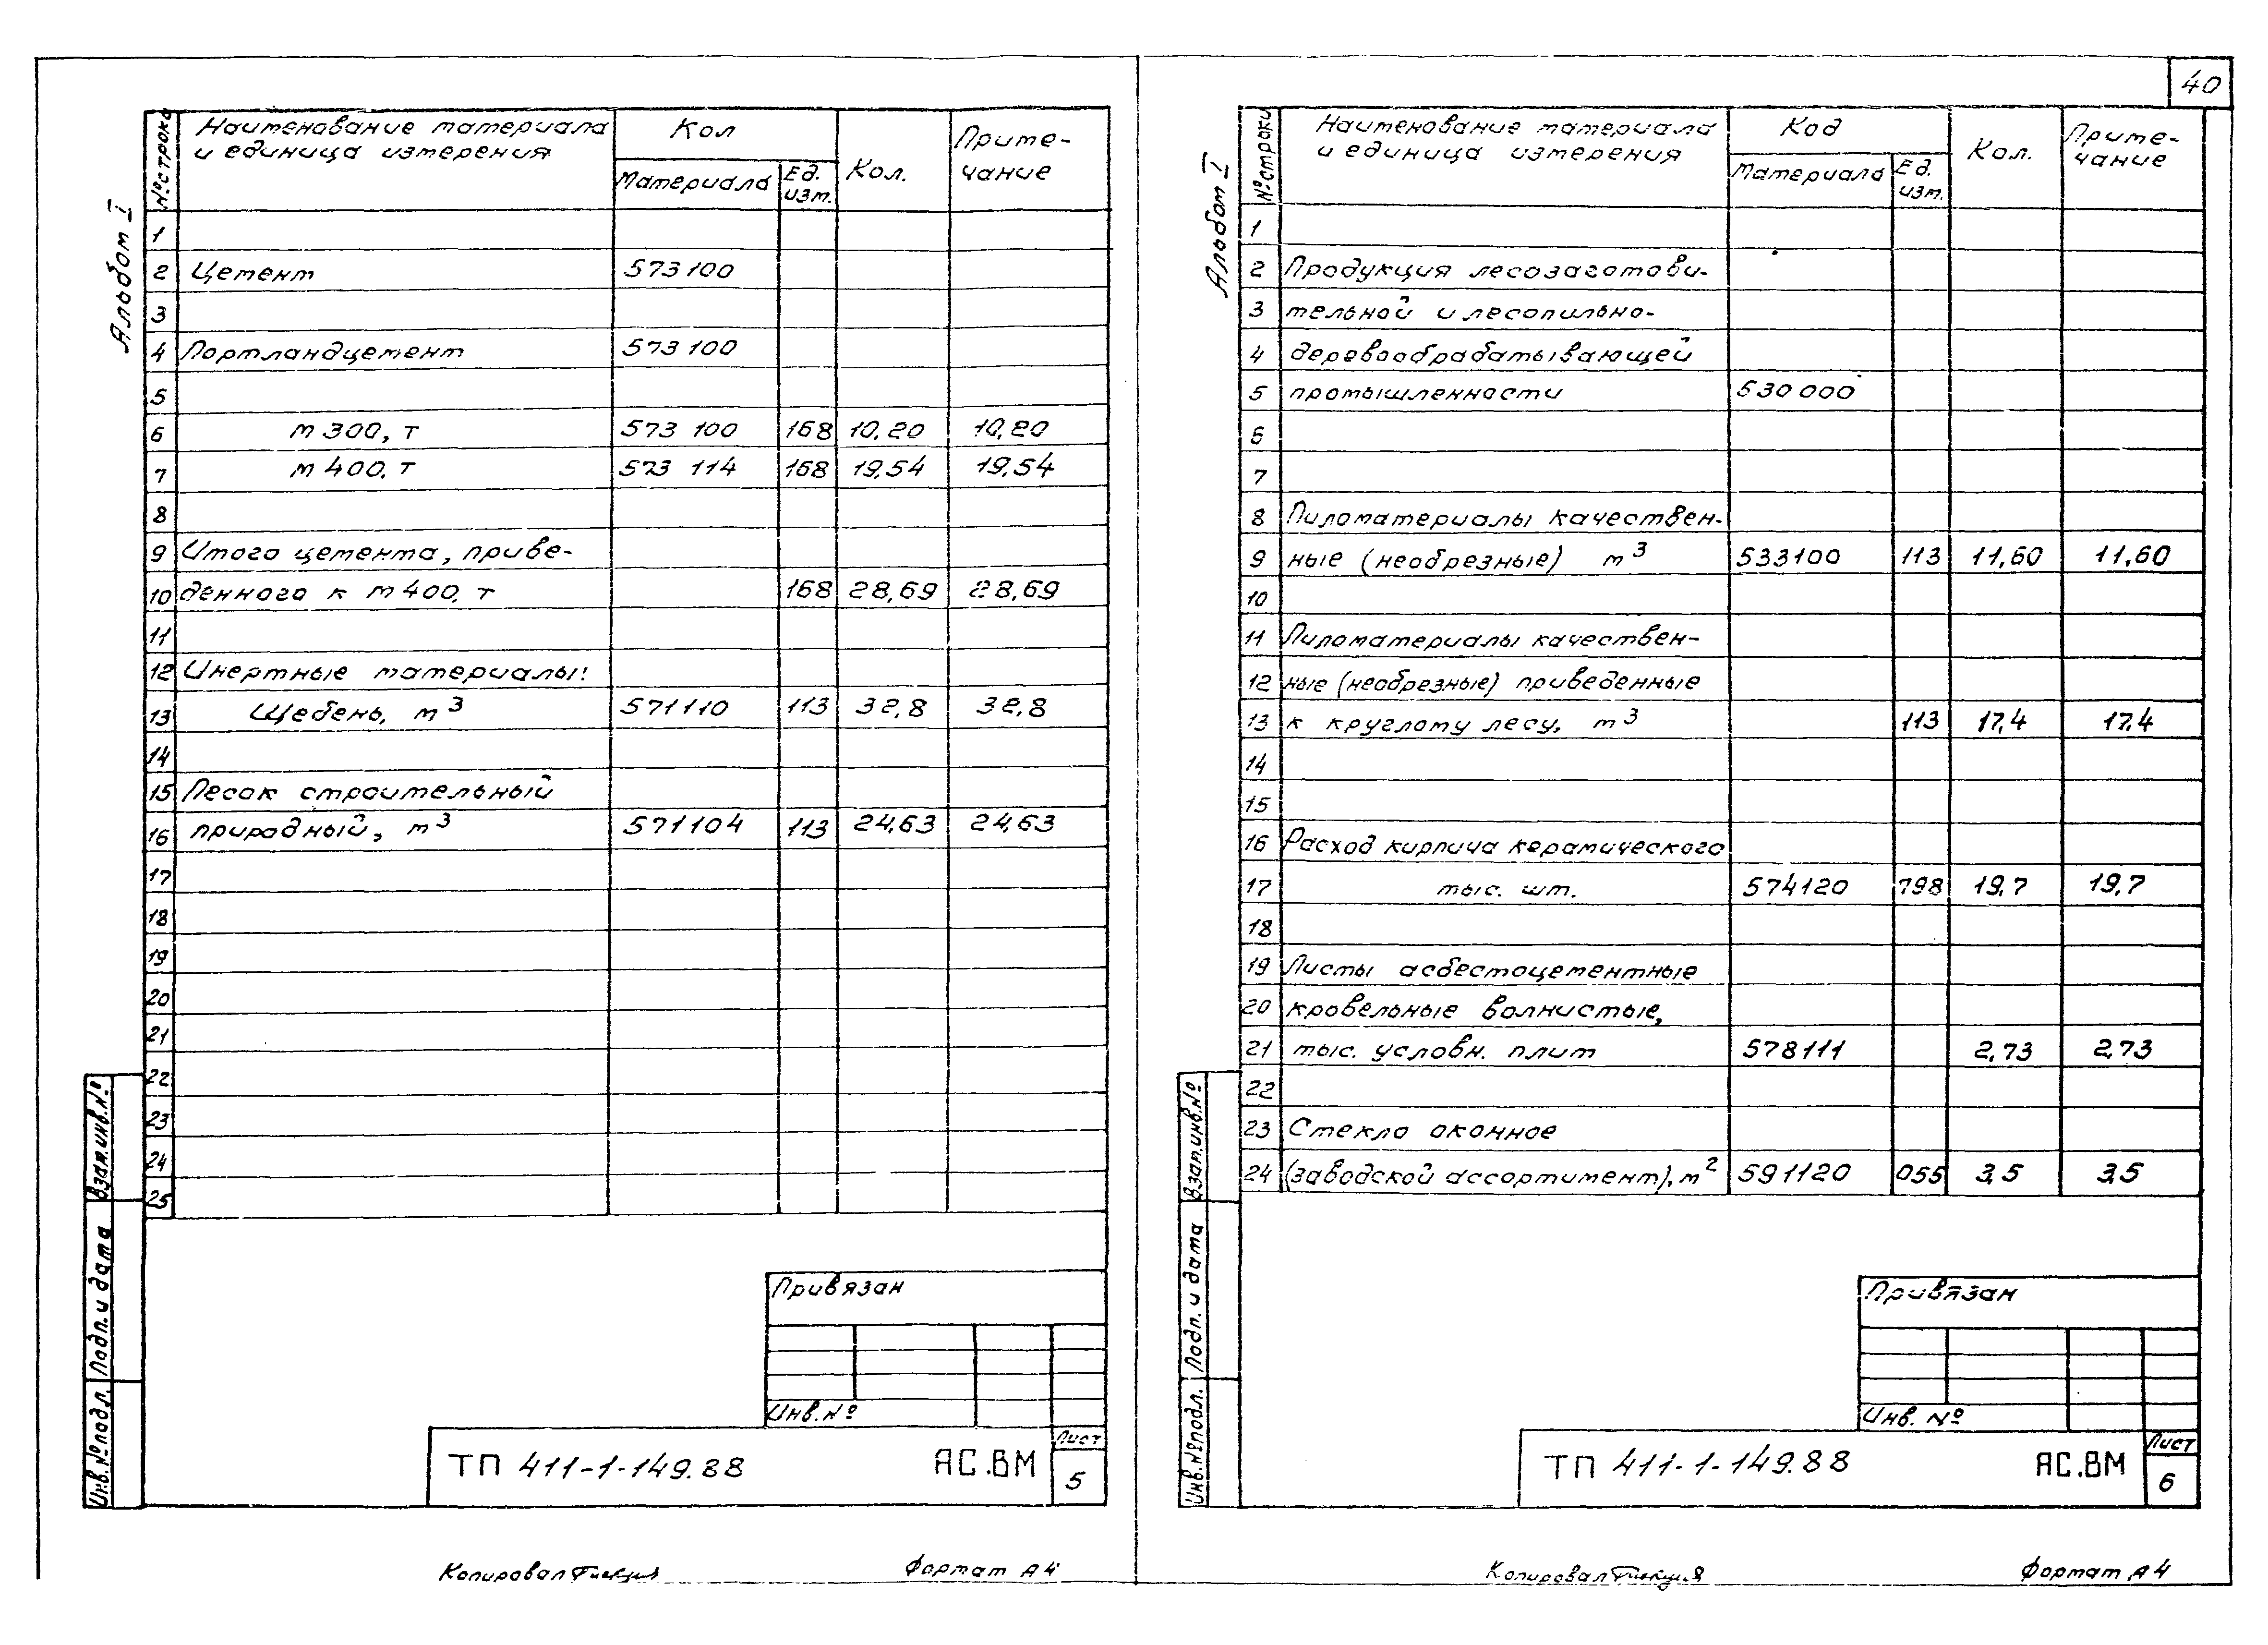 40
Альбом I
№ строки
Наименование материала
и единица измерения
Кол
Материала
Ед.
изм.
Кол.
Приме-
чание
1
2 Цемент 573100
3
4 Портландцемент 573100
5
6 м 300, т 573 100 168 10,20 10,20
7 м 400, т 573 114 168 19,54 19,54
8
9 Итого цемента, приве-
10 денного к м 400, т 168 28,69 28,69
11
12 Инертные материалы:
13 Щебень, м³ 571110 113 32,8 32,8
14
15 Песок строительный
16 природный, м³ 571104 113 24,63 24,63
17
18
19
20
21
22
23
24
25
Взам.инв.№
Подп. и дата
Инв.№подл.
Привязан
Инв. №
ТП 411-1-149.88 АС.ВМ
Лист
5
Копировал
Формат А4
Альбом I
№ строки
Наименование материала
и единица измерения
Код
Материала
Ед.
изм.
Кол.
Приме-
чание
1
2 Продукция лесозаготови-
3 тельной и лесопильно-
4 деревообрабатывающей
5 промышленности 530 000
6
7
8 Пиломатериалы качествен-
9 ные (необрезные) м³ 533100 113 11,60 11,60
10
11 Пиломатериалы качествен-
12 ные (необрезные) приведенные
13 к круглому лесу, м³ 113 17,4 17,4
14
15
16 Расход кирпича керамического
17 тыс. шт. 574120 798 19,7 19,7
18
19 Листы асбестоцементные
20 кровельные волнистые,
21 тыс. условн. плит 578111 2,73 2,73
22
23 Стекло оконное
24 (заводской ассортимент), м² 591120 055 3,5 3,5
Взам.инв.№
Подп. и дата
Инв.№подл.
Привязан
Инв. №
ТП 411-1-149.88 АС.ВМ
Лист
6
Копировал
Формат А4